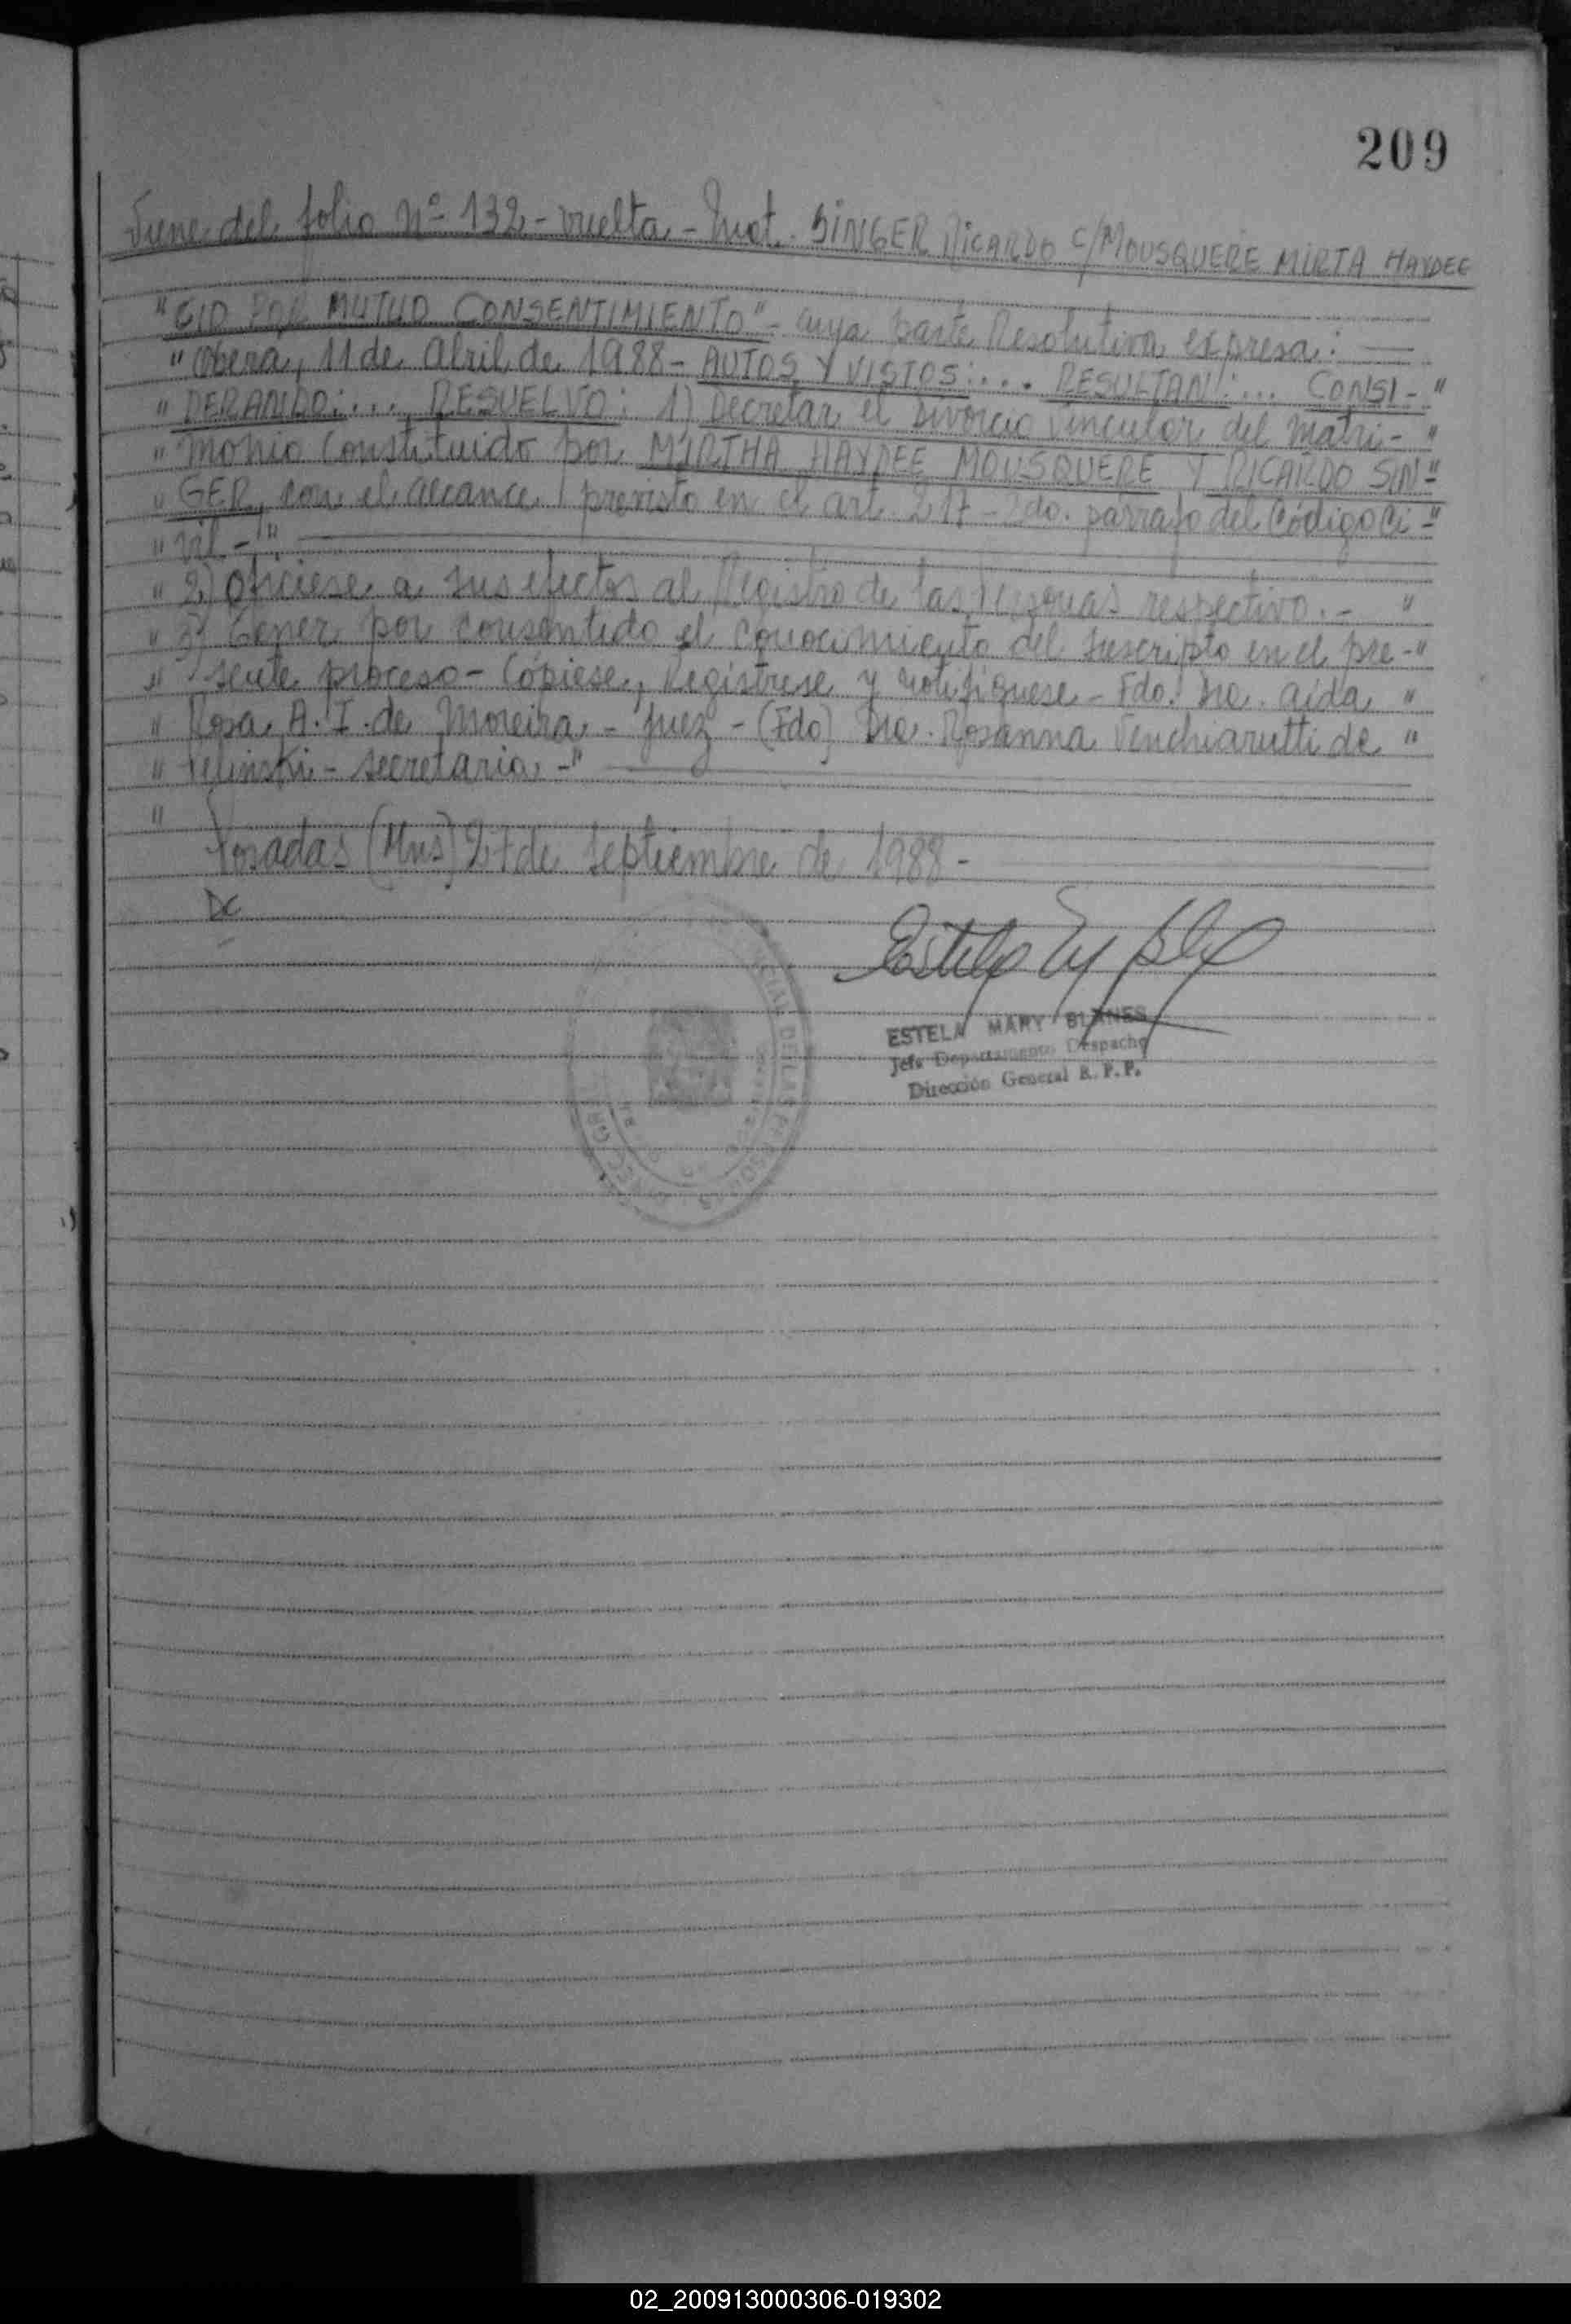 209
Viene del folio Nº 132 - vuelta - Mat. SINGER RICARDO C/MOUSQUERE MIRTA HAYDEE
"S/D POR MUTUO CONSENTIMIENTO" - cuya parte Resolutiva expresa:
"Obera, 11 de Abril de 1988 - AUTOS Y VISTOS:... RESULTAN:... CONSI-"
"DERANDO:... RESUELVO: 1) Decretar el Divorcio Vincular del Matri-"
"monio Constituido por MIRTHA HAYDEE MOUSQUERE Y RICARDO SIN-"
"GER, con el alcance previsto en el art. 217 - 2do. parrafo del Código Ci-"
"vil -"
"2) Ofíciese a sus efectos al Registro de las Personas respectivo.- "
"3) Tener por consentido el conocimiento del suscripto en el pre-"
"sente proceso - Cópiese, Regístrese y notifíquese - Fdo. Dra. Aída "
"Rosa A. I. de Moreira - Juez - (Fdo) Dra. Rosanna Venchiarutti de "
"- Secretaria -"
"
Posadas (Mns) 27 de Septiembre de 1988 -
DC
ESTELA MARY BLANES
Jefe Departamento Despacho
Dirección General R. P. P.
DE LAS PERSONAS
02_200913000306-019302